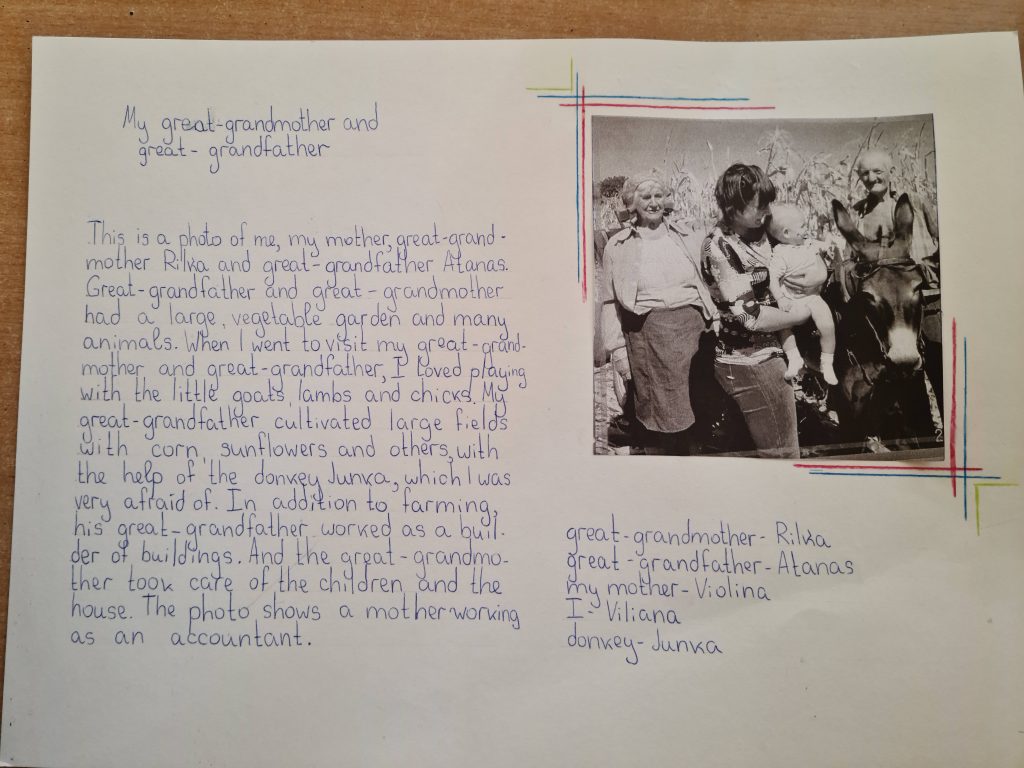 My great-grandmother and
great- grandfather
This is a photo of me, my mother, great-grand-
mother Rilka and great-grandfather Atanas.
Great-grandfather and great-grandmother
had a large, vegetable garden and many
animals. When I went to visit my great-grand-
mother and great-grandfather, I loved playing
with the little goats, lambs and chicks. My
great-grandfather cultivated large fields
with corn, sunflowers and others, with
the help of the donkey Junka, which I was
very afraid of. In addition to farming,
his great-grandfather worked as a buil-
der of buildings. And the great-grandmo-
ther took care of the children and the
house. The photo shows a mother working
as an accountant.
great-grandmother- Rilka
great-grandfather- Atanas
my mother- Violina
I- Viliana
donkey- Junka